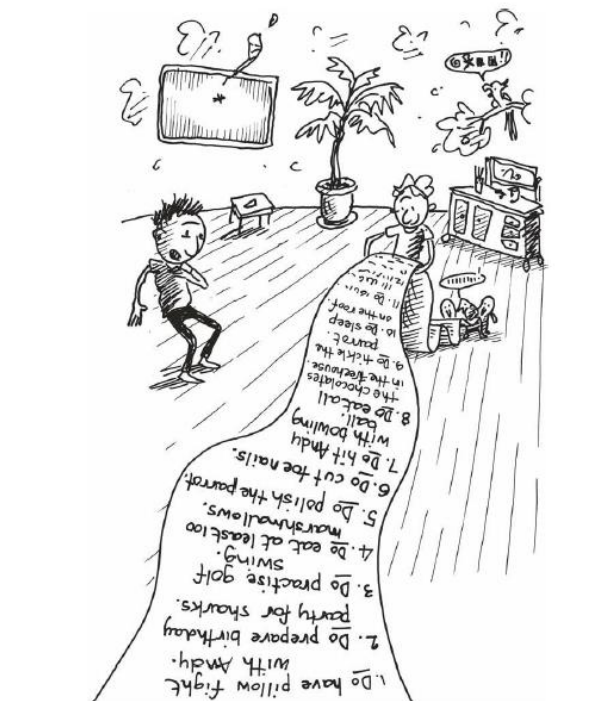 1. Do have pillow fight
with Andy.
2. Do prepare birthday
party for sharks.
3. Do practise golf
swing.
4. Do eat at least 100
marshmallows.
5. Do polish the parrot.
6. Do cut toe nails.
7. Do hit Andy
with bowling
ball.
8. Do eat all
the chocolates
in the treehouse
9. Do tickle the
parrot.
10. Do sleep
on the roof.
11. Do